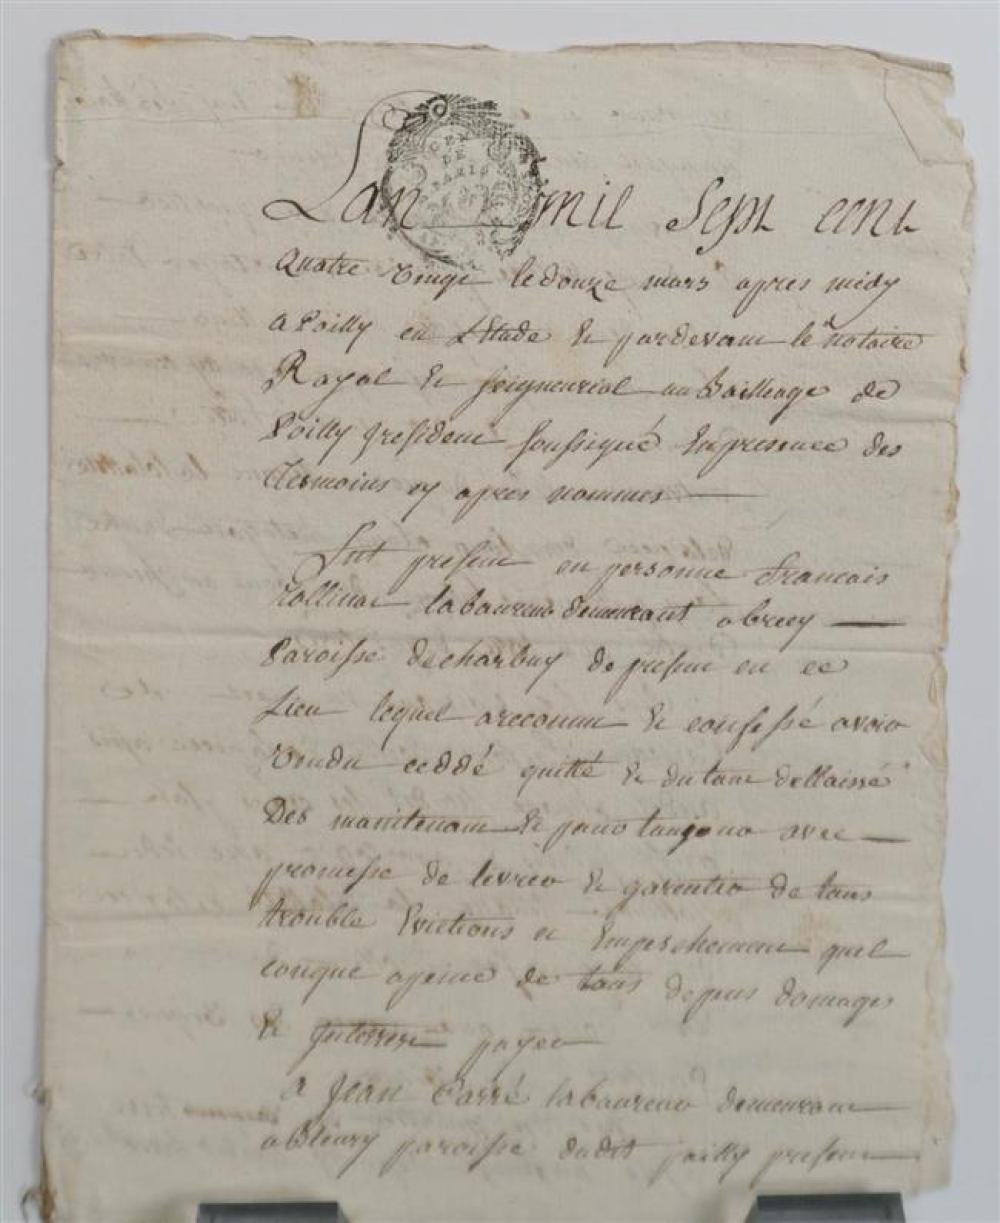 GEN
DE
PARIS
Lan mil Sept cent
quatre vingt le douze mars apres midy
a Poilly en L'Etude & pardevant le notaire
Royal & seigneurial au Bailliage de
Poilly president soussigné En presence des
tesmoins cy apres nommés
Fut present en personne francois
laboureur demeurant a brecy
Paroisse de charbuy de present en ce
Lieu lequel a reconnu & confessé avoir
vendu ceddé quitté & du tout dellaissé
Des maintenant & pour toujours avec
promesse de livrer & garentir de tous
trouble Evictions et Empeschement quel
conque a peine de tous depens domages
& Interest payer
a Jean Carré laboureur demeurant
a Bleury paroisse dudit poilly present